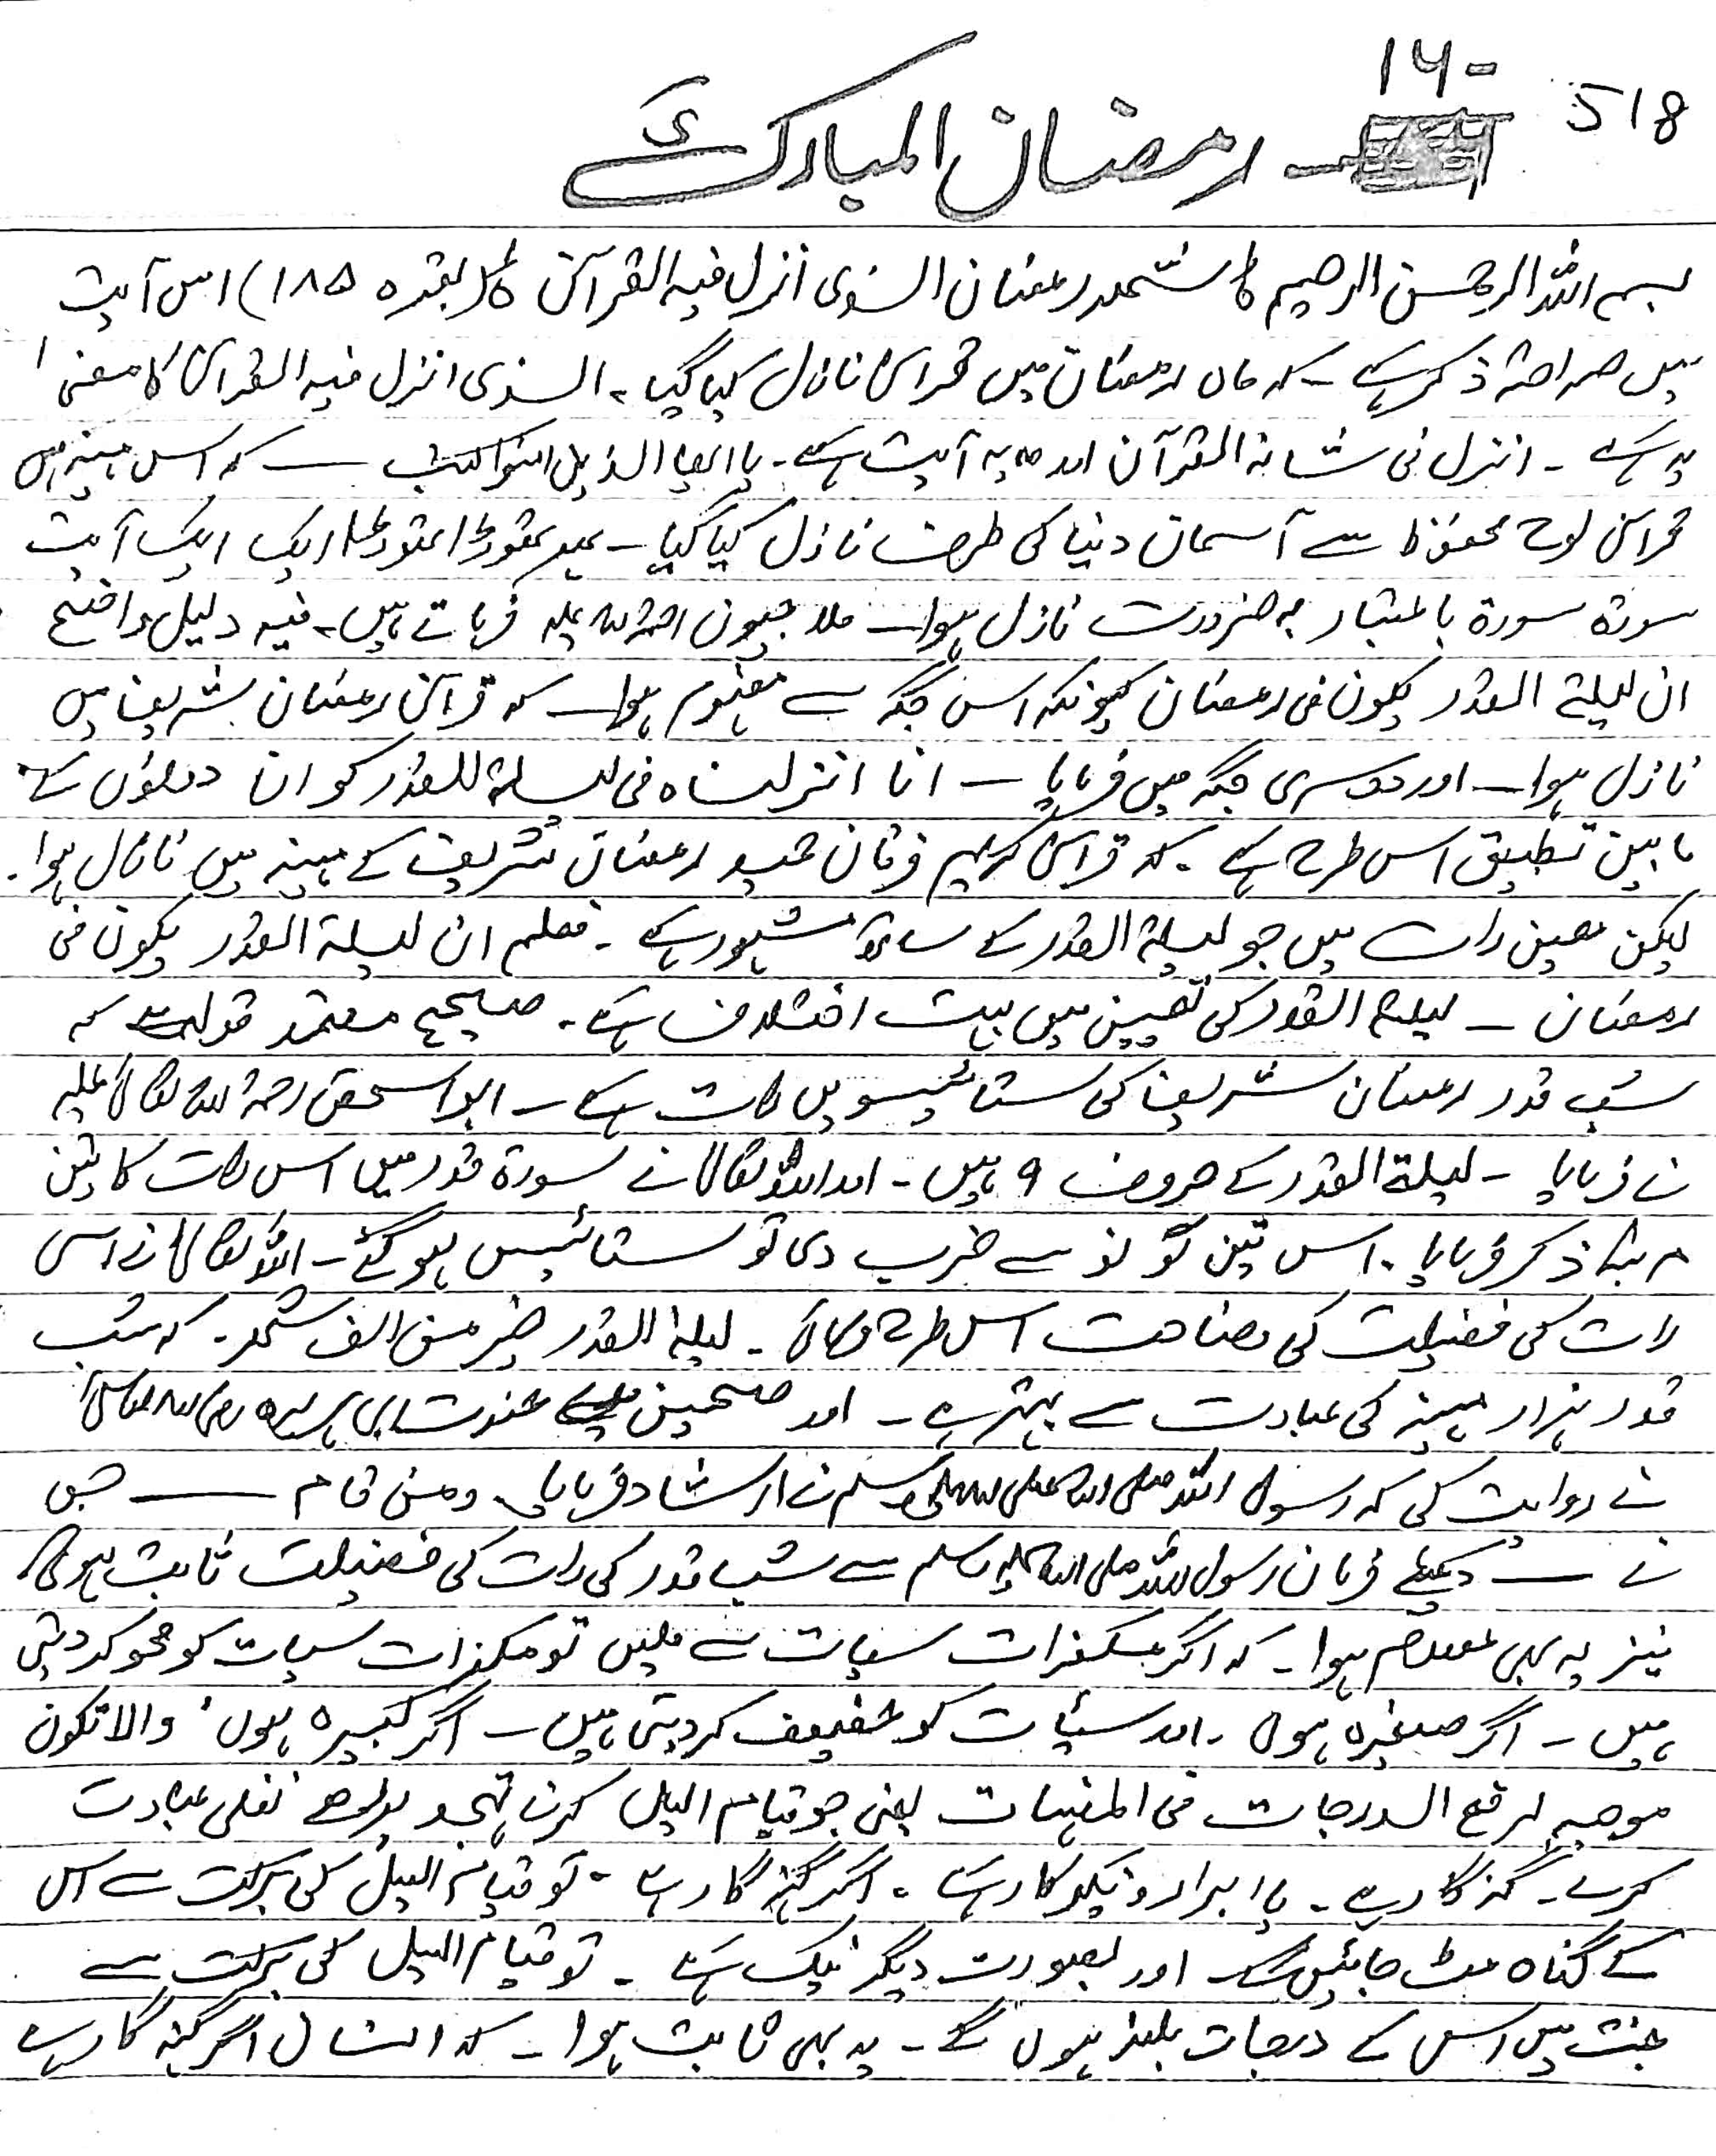 518
۱۶-
رمضان المبارک
بسم اللہ الرحمن الرحیم ط شھر رمضان الذی انزل فیہ القرآن ط (بقرہ ۱۸۵) اس آیت
میں صراحۃ ذکر ہے ۔ کہ ماہ رمضان میں قرآن نازل کیا گیا ۔ الذی انزل فیہ القرآن کا معنی
یہ ہے ۔ انزل فی شانہ القرآن اور وہ یہ آیت ہے ۔ یا ایھا الذین امنوا کتب ۔ کہ اس مہینہ میں
قرآن لوح محفوظ سے آسمان دنیا کی طرف نازل کیا گیا ۔ پھر تھوڑا تھوڑا ایک ایک آیت
سورۃ سورۃ باعتبار ضرورت نازل ہوا ۔ ملا جیون رحمۃ اللہ علیہ فرماتے ہیں ۔ فیہ دلیل واضح
ان لیلۃ القدر یکون فی رمضان کیونکہ اس جگہ سے مفہوم ہوا ۔ کہ قرآن رمضان شریف میں
نازل ہوا ۔ اور دوسری جگہ میں فرمایا ۔ انا انزلناہ فی لیلۃ القدر کو ان دونوں کے
مابین تطبیق اس طرح ہے ۔ کہ قرآن کریم فرقان حمید رمضان شریف کے مہینہ میں نازل ہوا ۔
لیکن معین رات میں جو لیلۃ القدر کے ساتھ مشہور ہے ۔ فعلم ان لیلۃ القدر یکون فی
رمضان ۔ لیلۃ القدر کی تعیین میں بہت اختلاف ہے ۔ صحیح معتمد قول ہے کہ
شب قدر رمضان شریف کی ستائیسویں رات ہے ۔ ابو اسحق رحمۃ اللہ تعالیٰ علیہ
نے فرمایا ۔ لیلۃ القدر کے حروف ۹ ہیں ۔ اور اللہ تعالیٰ نے سورۃ قدر میں اس رات کا تین
مرتبہ ذکر فرمایا ۔ اس تین کو نو سے ضرب دی تو ستائیس ہو گئے ۔ اللہ تعالیٰ نے اسی
رات کی فضیلت کی وضاحت اس طرح فرمائی ۔ لیلۃ القدر خیر من الف شھر ۔ کہ شب
قدر ہزار مہینہ کی عبادت سے بہتر ہے ۔ اور صحیحین میں حضرت ابی ہریرہ رضی اللہ تعالیٰ
نے روایت کی کہ رسول اللہ صلی اللہ علیہ وسلم نے ارشاد فرمایا ۔ ومن قام ـــ جس
نے ـــ دیکھئے فرمان رسول اللہ صلی اللہ علیہ وسلم سے شب قدر کی رات کی فضیلت ثابت ہوئی
نیز یہ بھی معلوم ہوا ۔ کہ اگر مکفرات سیات سے ملیں تو مکفرات سیات کو محو کر دیتی
ہیں ۔ اگر صغیرہ ہوں ۔ اور سیئات کو خفیف کر دیتی ہیں ۔ اگر کبیرہ ہوں ، والا تکون
موجبہ لرفع الدرجات فی الجنات یعنی جو قیام الیل کرے تہجد پڑھے نفلی عبادت
کرے ۔ گنہ گار ہے ۔ یا ابرار و نیکو کار ہے ۔ اگر گنہ گار ہے ۔ تو قیام اللیل کی برکت سے اس
کے گناہ مٹ جائیں گے ۔ اور بصورت دیگر نیک ہے ۔ تو قیام اللیل کی برکت سے
جنت میں اس کے درجات بلند ہوں گے ۔ یہ بھی ثابت ہوا ۔ کہ انسان اگر گنہ گار ہے